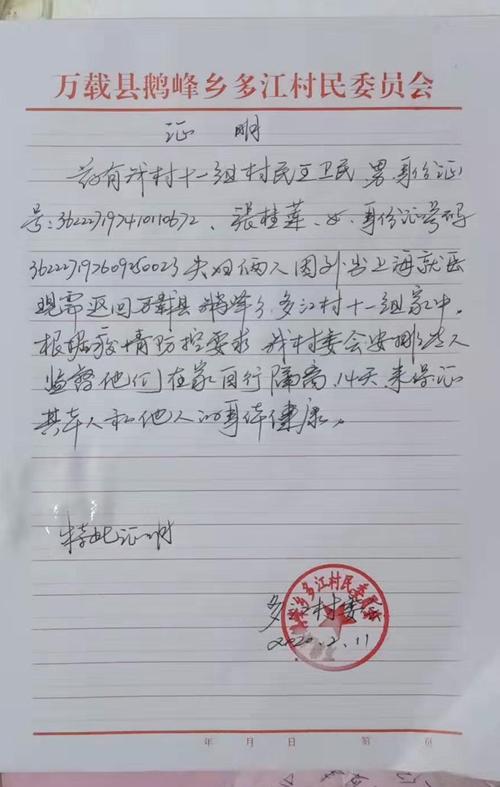 万载县鹅峰乡多江村民委员会
证 明
兹有我村十一组村民王卫民 男 身份证
号:362227197410110672、张桂莲、女、身份证号码
362227197609250023 夫妇俩人因外出上海就医
现需返回万载县鹅峰乡多江村十一组家中。
根据疫情防控要求 我村委会安排专人
监督他们在家自行隔离,14天,来保证
其本人和他人的身体健康。
特此证明
鹅峰乡多江村民委员会
多江村委会
2020.2.11
年 月 日 第 页